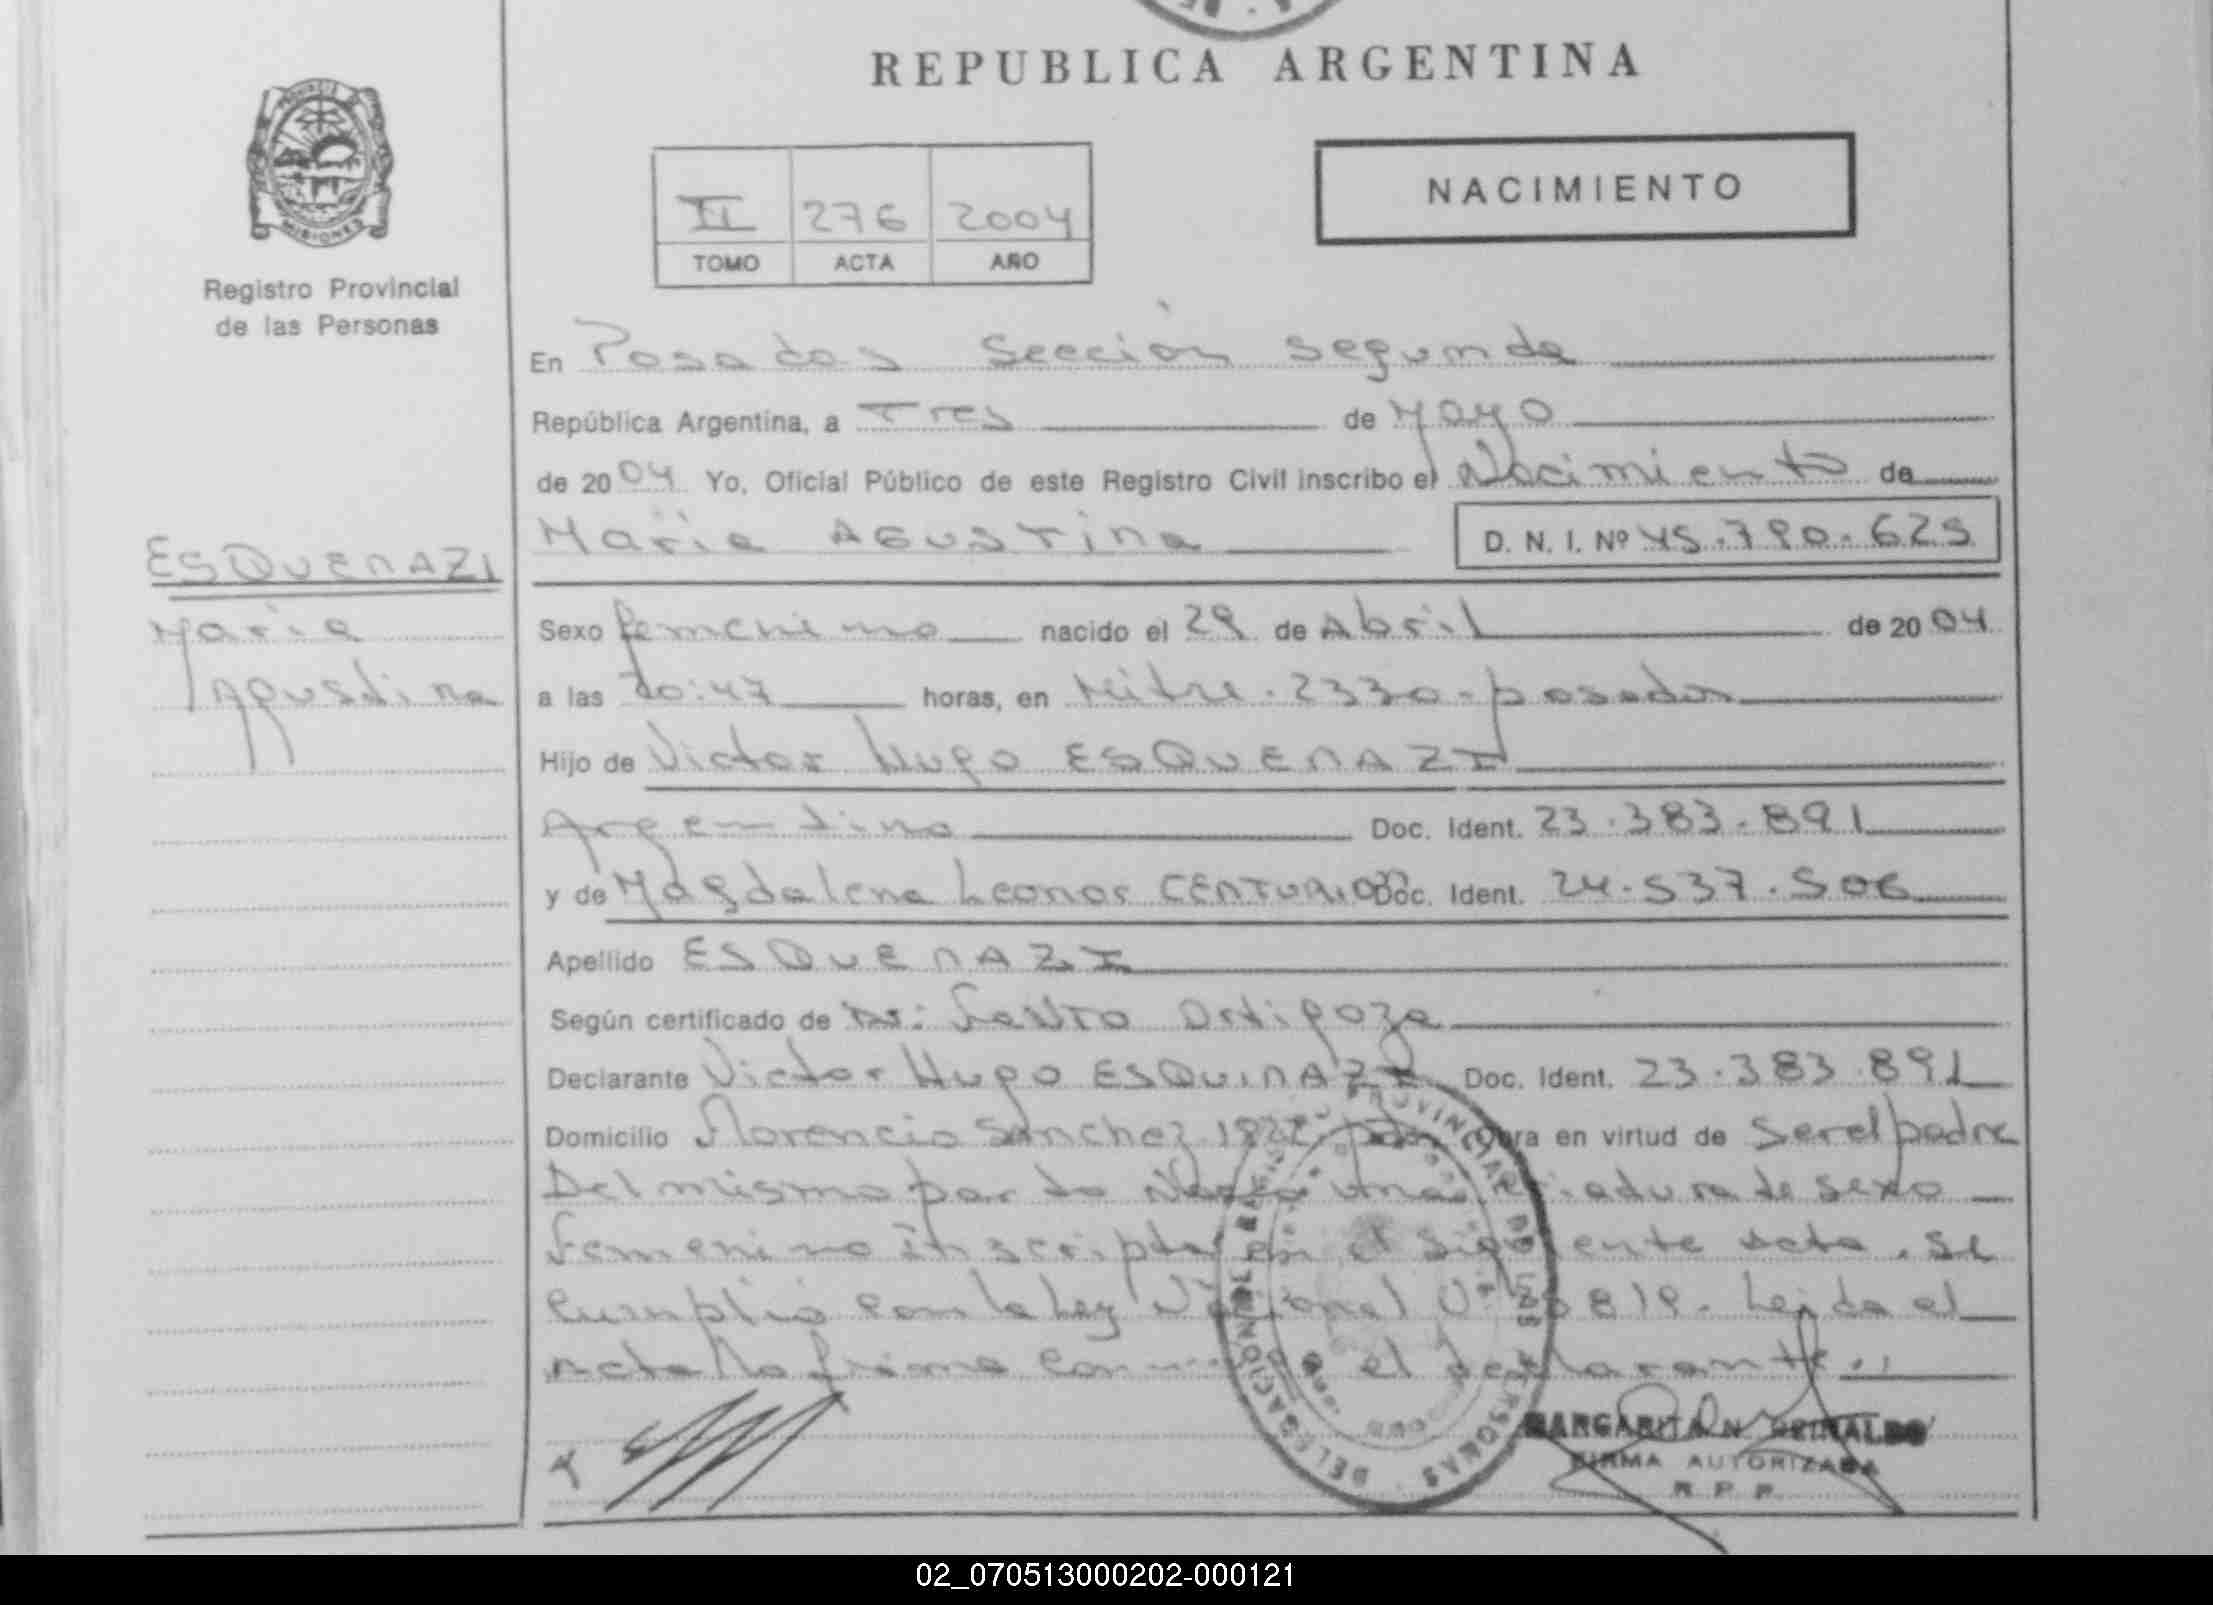 REPUBLICA ARGENTINA
MISIONES
Registro Provincial
de las Personas
II 276 2004
TOMO ACTA AÑO
NACIMIENTO
En Posadas Sección Segunda
República Argentina, a Tres de Mayo
de 2004 Yo, Oficial Público de este Registro Civil inscribo el Nacimiento de
María Agustina D. N. I. Nº 45.790.625
ESQUENAZI
María
Agustina
Sexo femenino nacido el 29 de Abril de 2004
a las 20:47 horas, en Mitre 2330 - posadas
Hijo de Victor Hugo ESQUENAZI
Argentino Doc. Ident. 23.383.891
y de Magdalena Leonor CENTURION Doc. Ident. 24.537.506
Apellido ESQUENAZI
Según certificado de Dr: Ortigoza
Declarante Victor Hugo ESQUINAZI Doc. Ident. 23.383.891
Domicilio Florencio Sanchez obra en virtud de Ser el padre
Del mismo parto Nacio una criadura de sexo
femenino inscripta en el siguiente acta. Se
Cumplio con la Ley Nacional Leida el
Acta la firma el declarante.
DELEGACION DEL REGISTRO PROVINCIAL DE LAS PERSONAS
MARGARITA N.
FIRMA AUTORIZADA
R P P
02_070513000202-000121